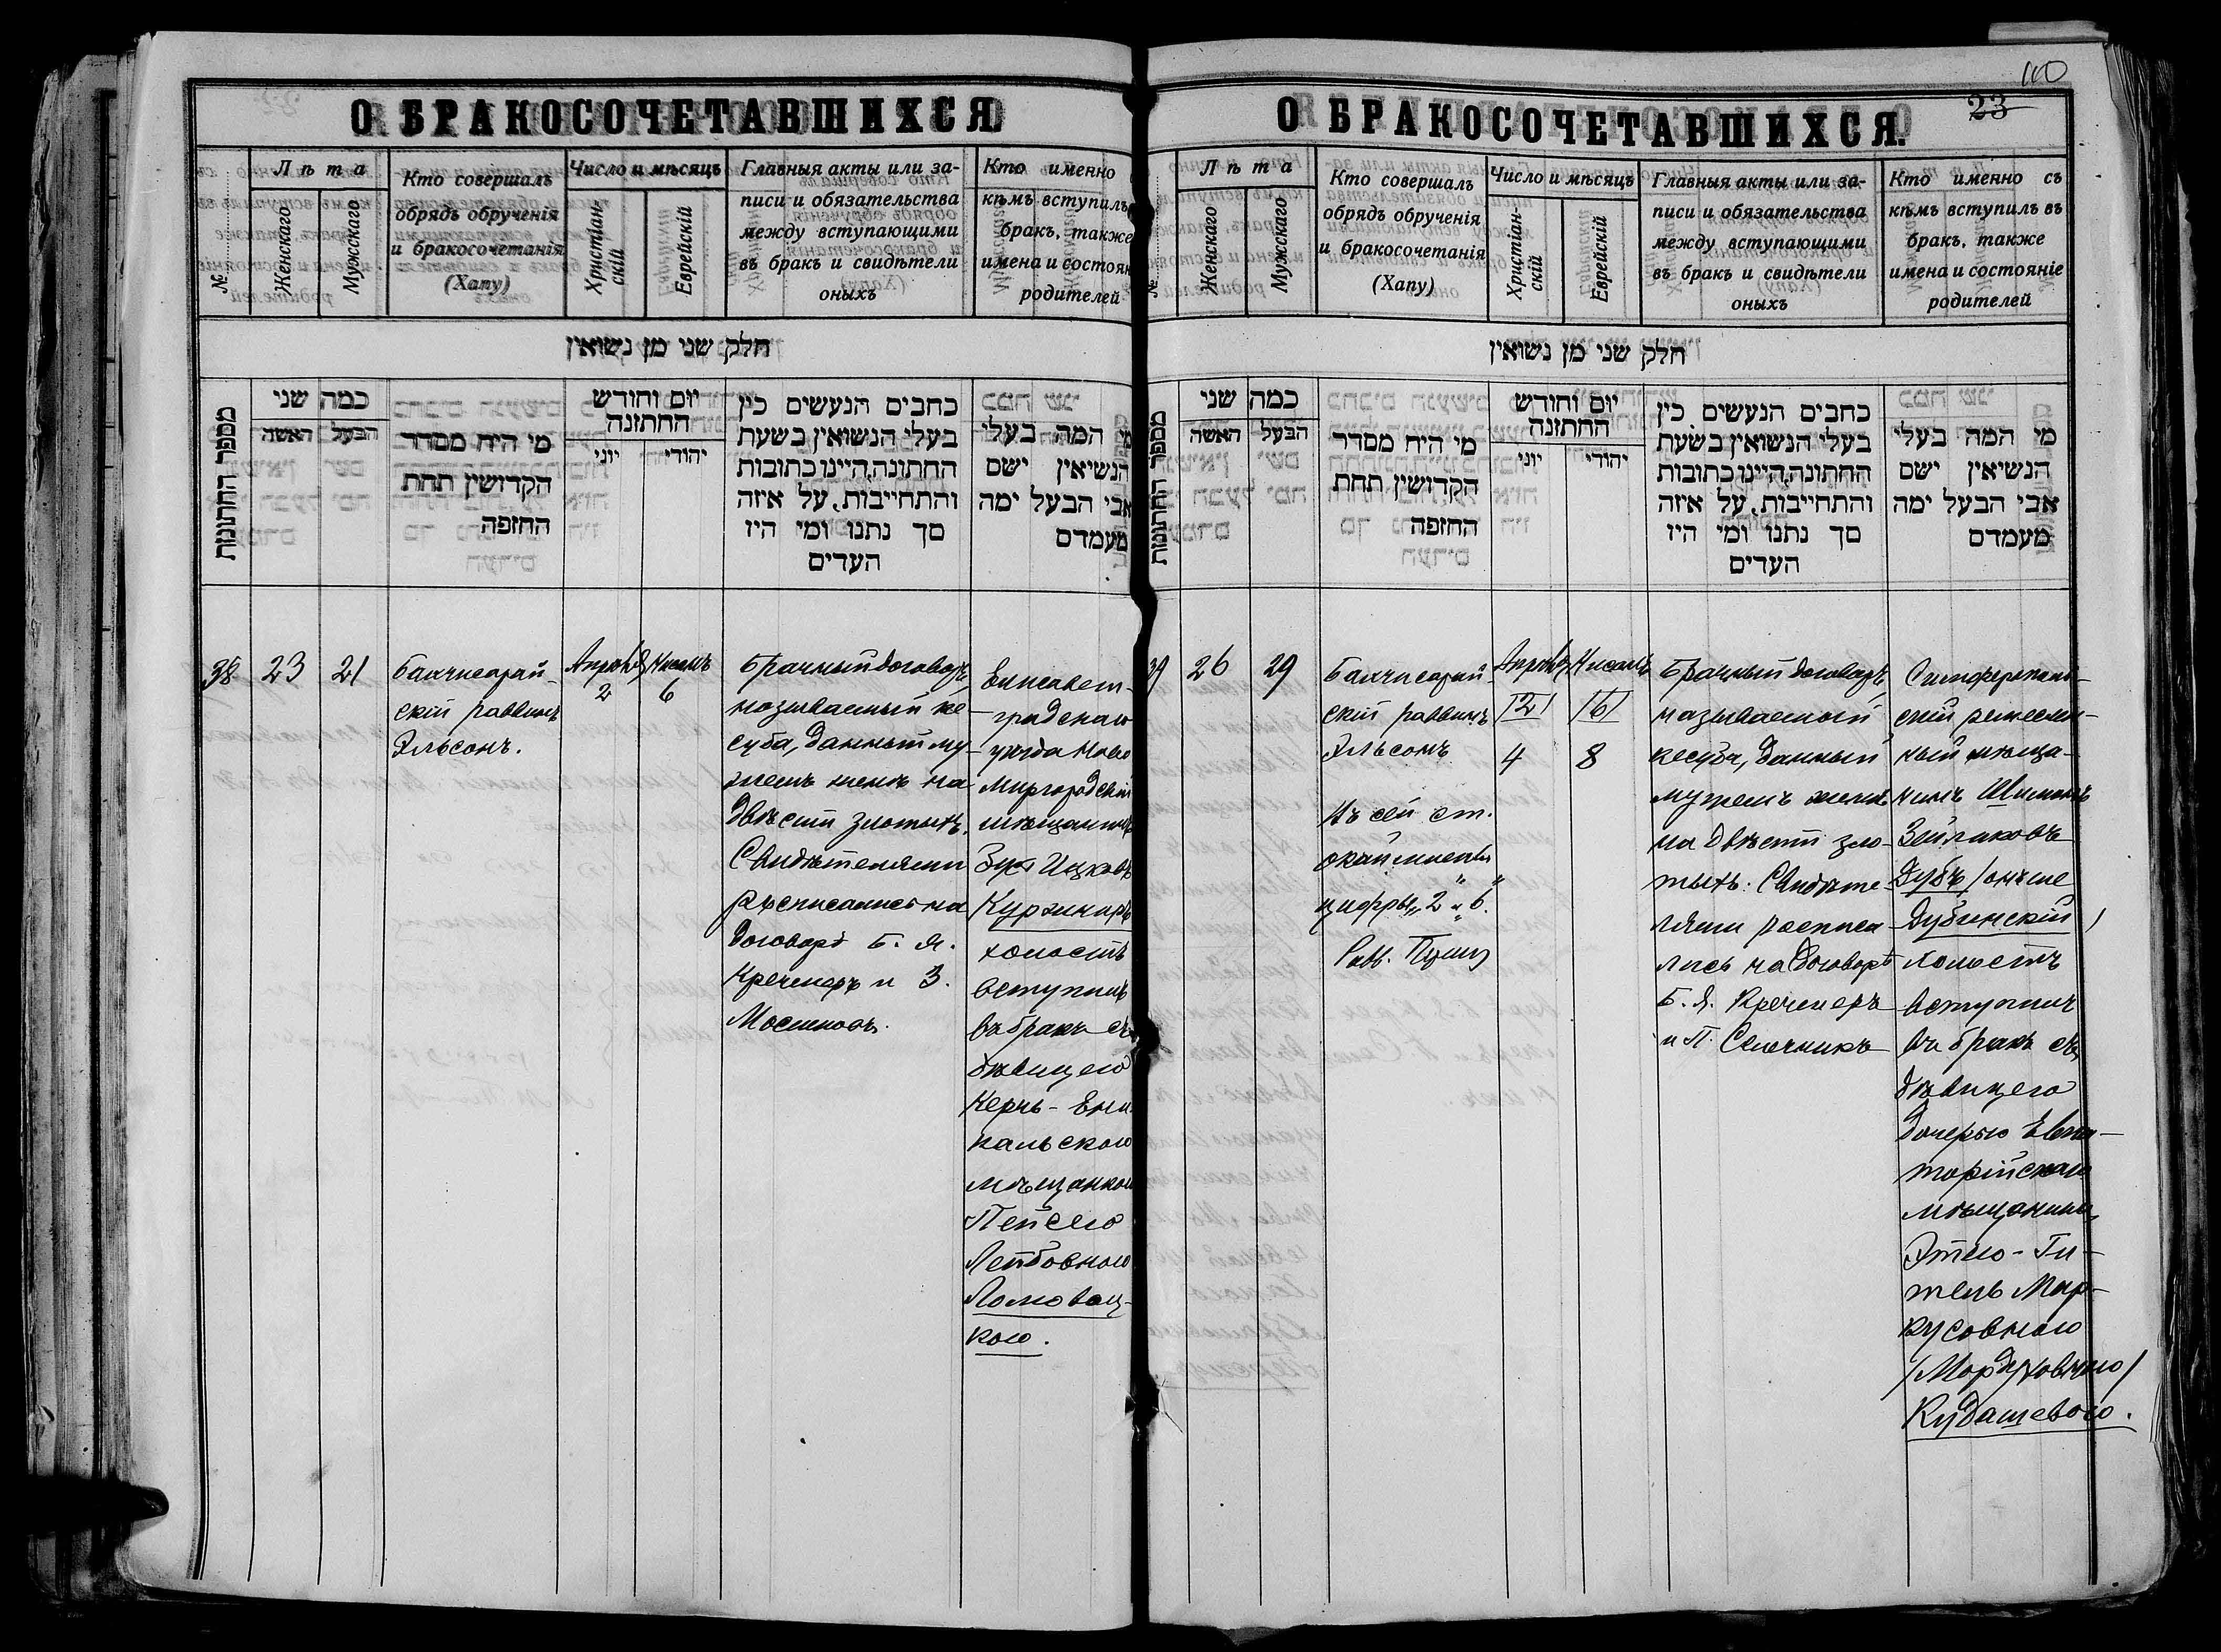 О БРАКОСОЧЕТАВШИХСЯ
№
Лѣта
Женскаго
Мужскаго
Кто совершалъ
обрядъ обрученія
и бракосочетанія
(Хапу)
Число и мѣсяцъ
Христіан-
скій
Еврейскій
Главныя акты или за-
писи и обязательства
между вступающими
въ бракъ и свидѣтели
оныхъ
Кто именно
кѣмъ вступилъ
бракъ, также
имена и состоян
родителей
חלק שני מן נשואין
מספר החתונות
כמה שני
האשה
הבעל
מי היה מסדר
הקדושין תחת
החופה
יום וחודש
החתונה
יוני
יהודי
כתבים הנעשים בין
בעלי הנשואין בשעת
החתונה, היינו כתובות
והתחייבות, על איזה
סך נתנו ומי היו
העדים
מי המה בעלי
הנשיאין ושם
אבי הבעל ומה
מעמדם
38
23
21
Бахчисарай-
скій раввинъ
Эльсонъ.
Апрѣля
2
Нисанъ
6
Брачный договоръ,
называемый ке-
суба, данный му-
жемъ женѣ на
двѣсти злотыхъ.
Свидѣтелями
расписались на
договорѣ Б. Я.
Кречмеръ и З.
Елисавет-
градскаго
уѣзда Ново
Миргородскій
мѣщанинъ
Ицковъ
холостъ
вступилъ
въ бракъ съ
дѣвицею
Керчь-Ени-
кальскою
мѣщанкою
Пейсею
Лейбовною
Ломовац-
кою.
О БРАКОСОЧЕТАВШИХСЯ.
110
23
№
Лѣта
Женскаго
Мужскаго
Кто совершалъ
обрядъ обрученія
и бракосочетанія
(Хапу)
Число и мѣсяцъ
Христіан-
скій
Еврейскій
Главныя акты или за-
писи и обязательства
между вступающими
въ бракъ и свидѣтели
оныхъ
Кто именно съ
кѣмъ вступилъ въ
бракъ, также
имена и состояніе
родителей
חלק שני מן נשואין
מספר החתונות
כמה שני
האשה
הבעל
מי היה מסדר
הקדושין תחת
החופה
יום וחודש
החתונה
יוני
יהודי
כתבים הנעשים בין
בעלי הנשואין בשעת
החתונה, היינו כתובות
והתחייבות, על איזה
סך נתנו ומי היו
העדים
מי המה בעלי
הנשיאין ושם
אבי הבעל ומה
מעמדם
39
26
29
Бахчисарай-
скій раввинъ
Эльсонъ
Въ сей ст.
окаймлены
цифры „2" и „6".
Рав.
Апрѣля
/2/
4
Нисанъ
/6/
8
Брачный договоръ,
называемый
кесуба, данный
мужемъ женѣ
на двѣсти зло-
тыхъ. Свидѣте-
лями расписа-
лись на договорѣ
Б. Я. Кречмеръ
и П.
Симферополь-
скій ремеслен-
ный мѣща-
нинъ Шимонъ
Зейликовъ
Дубъ /онъ же
Дубинскій/
холостъ
вступилъ
въ бракъ съ
дѣвицею
дочерью Евпа-
торійскаго
мѣщанина
Этею-Ги-
тель Мар-
кусовною
/Мордуховною/
Кудашевою.